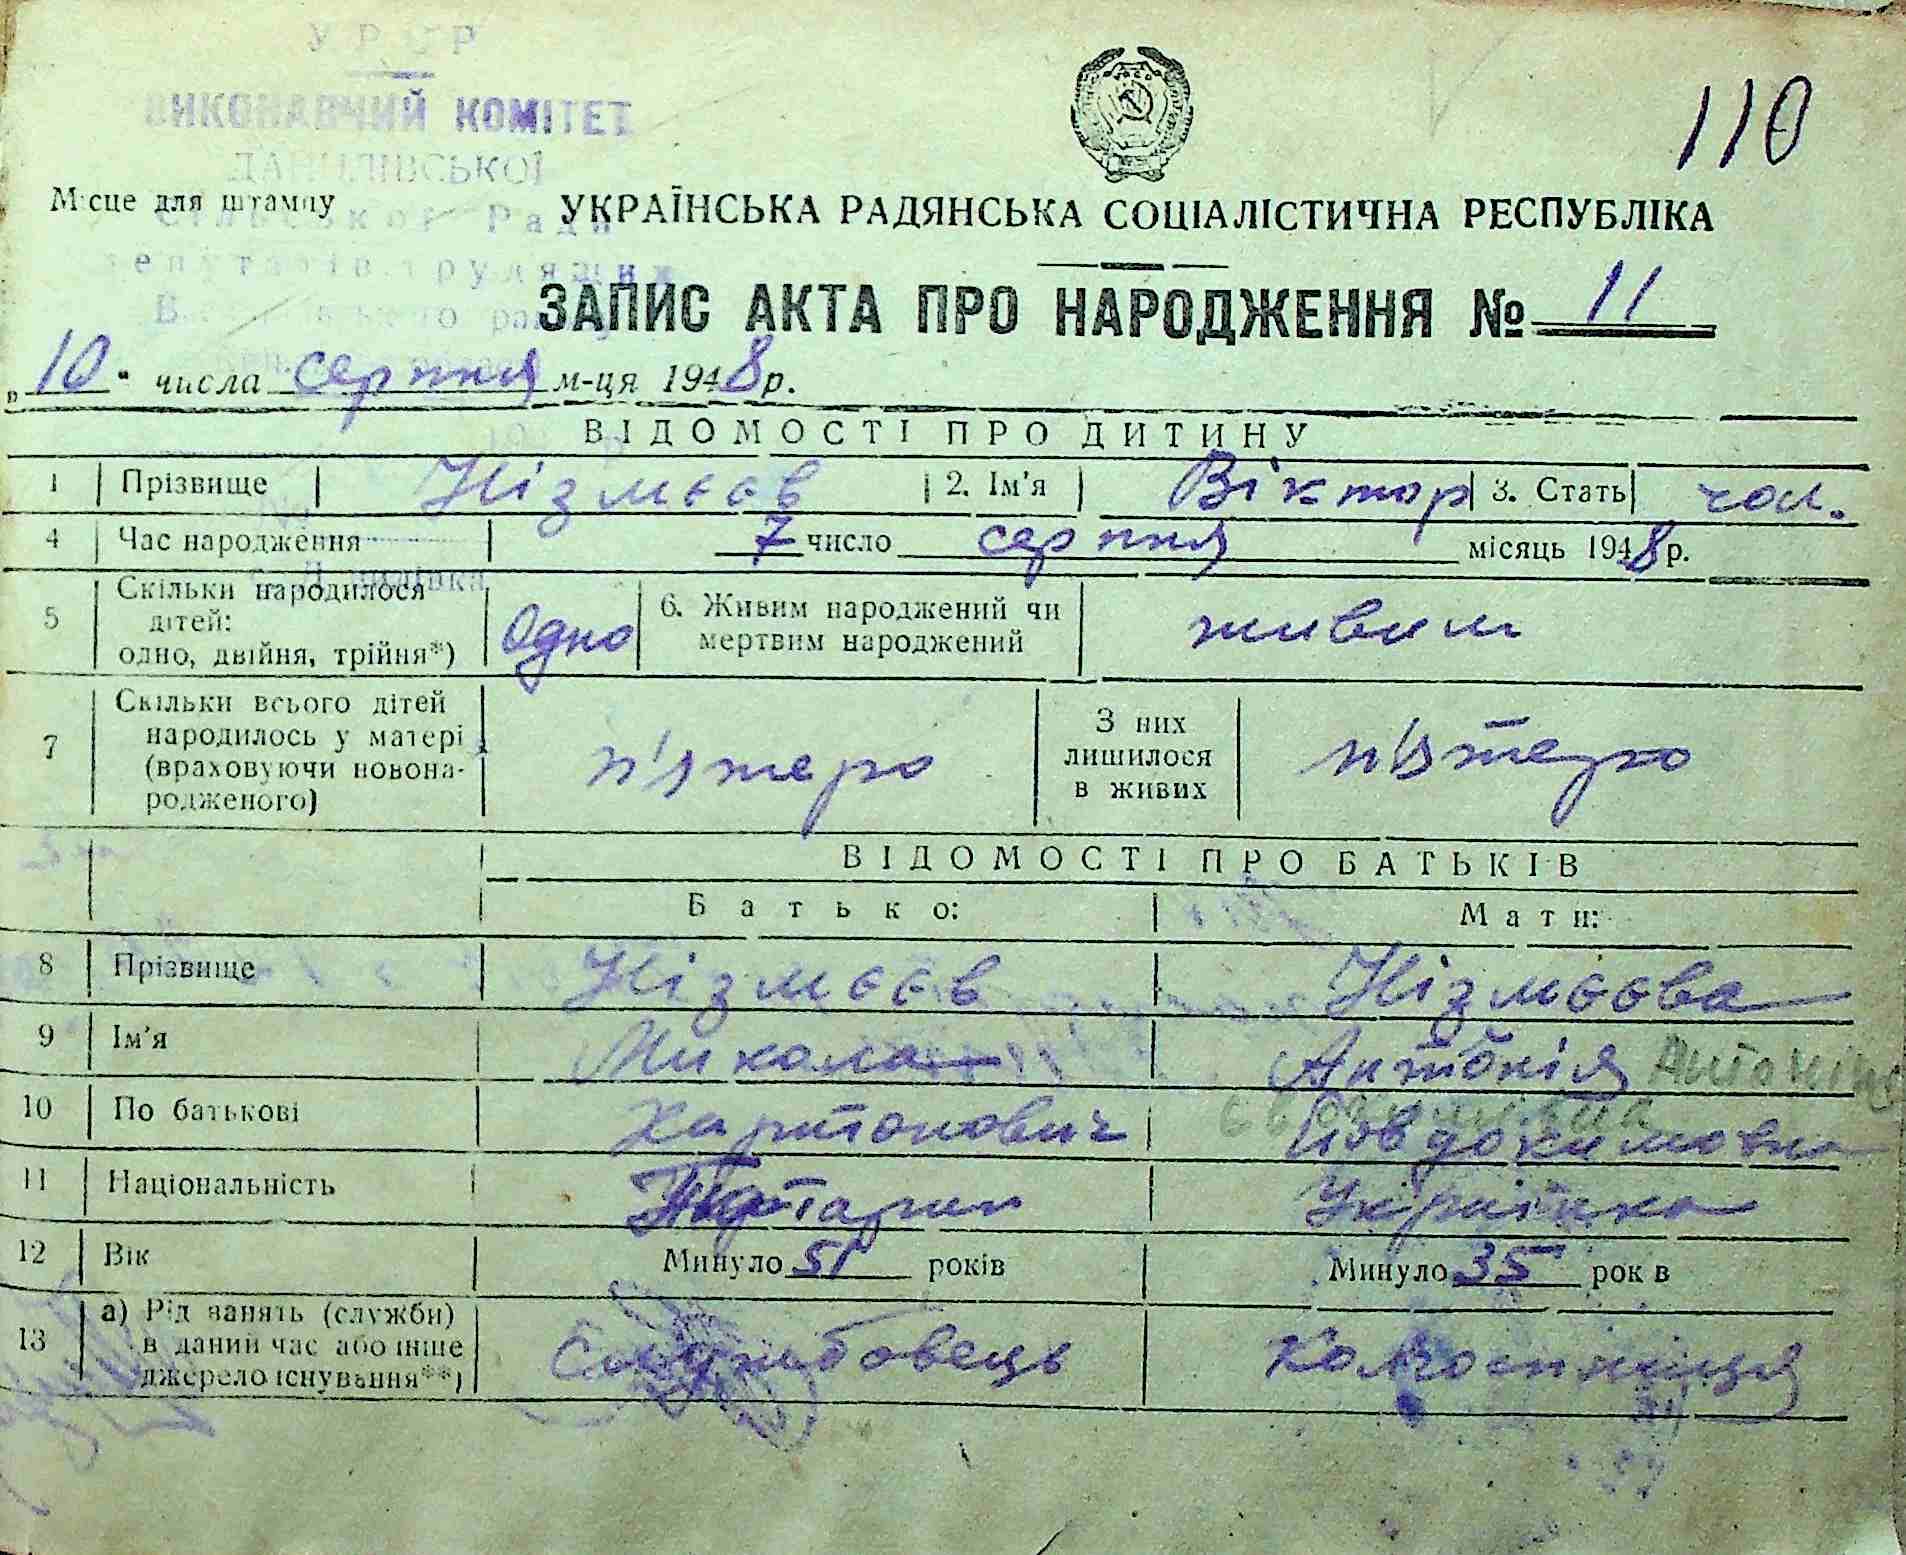 УРСР
ВИКОНАВЧИЙ КОМІТЕТ
ДАНИЛІВСЬКОЇ
Сільської Ради
депутатів трудящих
110
Місце для штампу
УКРАЇНСЬКА РАДЯНСЬКА СОЦІАЛІСТИЧНА РЕСПУБЛІКА
ЗАПИС АКТА ПРО НАРОДЖЕННЯ № 11
„10“ числа серпня м-ця 1948 р.
ВІДОМОСТІ ПРО ДИТИНУ
1 Прізвище Нізмєєв 2. Ім'я Віктор 3. Стать чол.
4 Час народження 7 число серпня місяць 1948 р.
5 Скільки народилося дітей: одно, двійня, трійня*) Одно 6. Живим народжений чи мертвим народжений живим
7 Скільки всього дітей народилось у матері (враховуючи новонародженого) п'ятеро З них лишилося в живих п'ятеро
ВІДОМОСТІ ПРО БАТЬКІВ
Батько: Мати:
8 Прізвище Нізмєєв Нізмєєва
9 Ім'я Микола Антонія Антоніна
10 По батькові Харитонович Овдокимовна
11 Національність Татарин Українка
12 Вік Минуло 51 років Минуло 35 років
13 а) Рід занять (служби) в даний час або інше джерело існування**) Службовець Колгоспниця